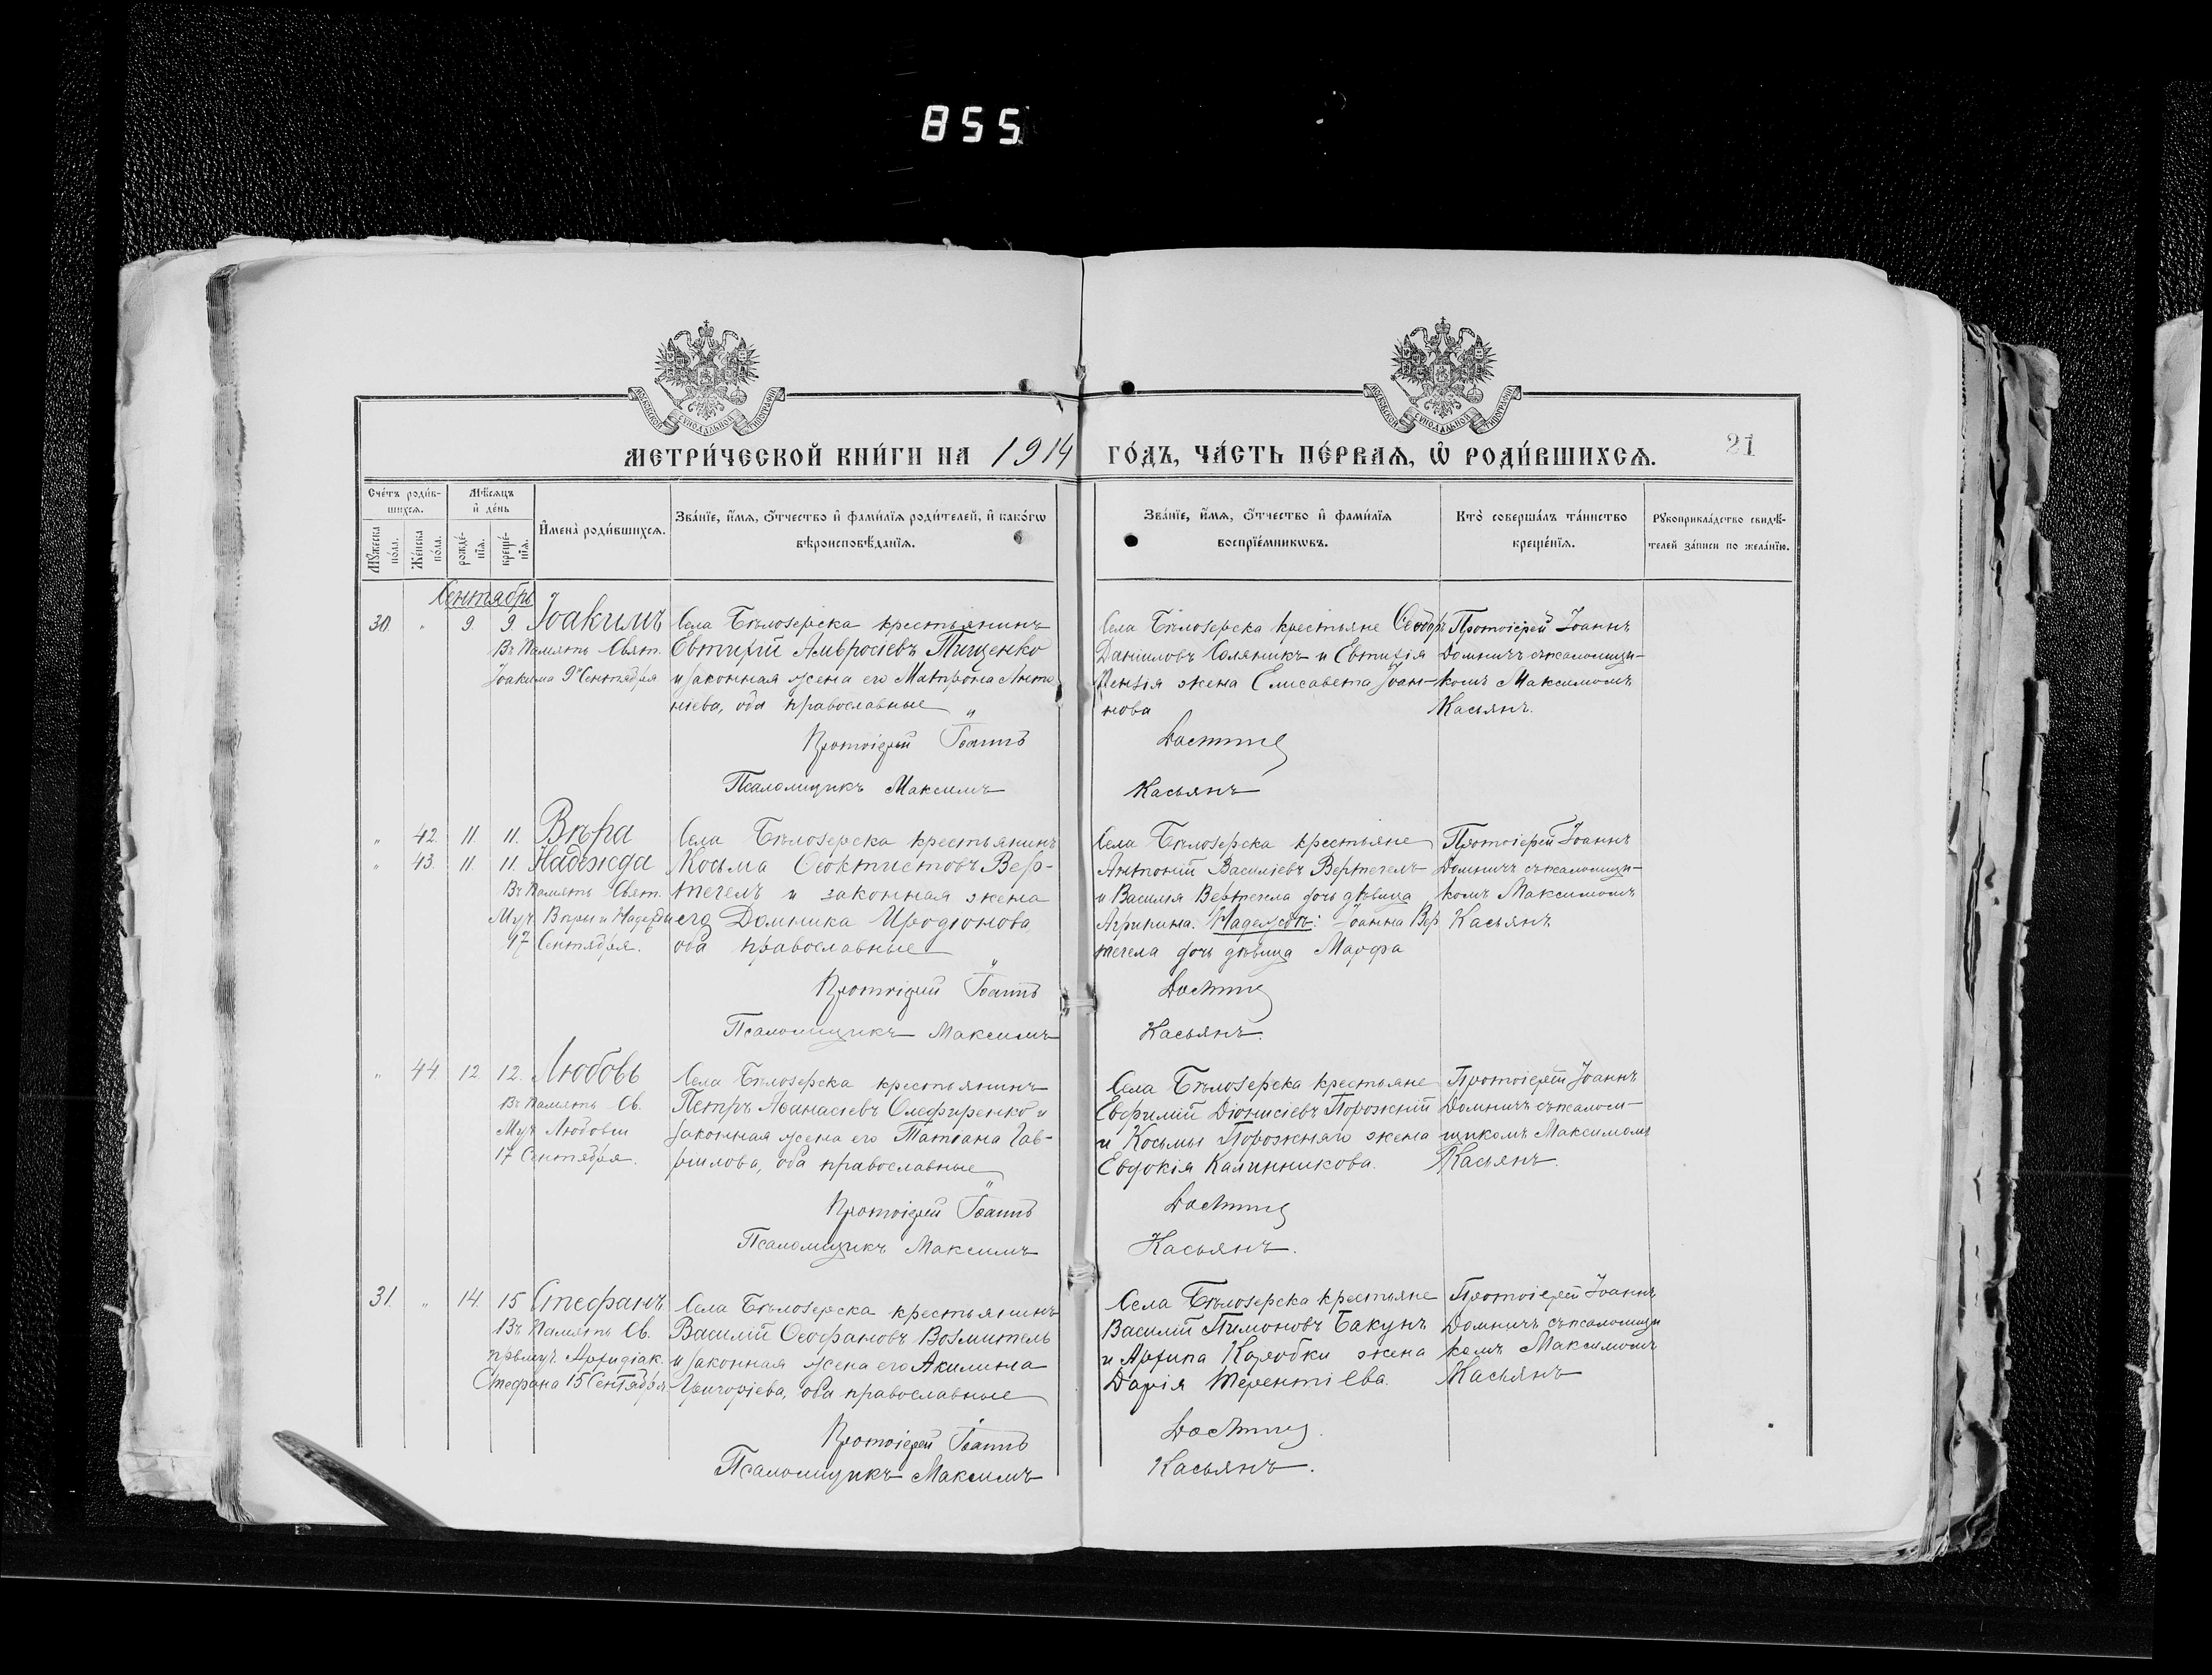 855
МОСКОВСКОЙ СѴНОДАЛЬНОЙ ТИПОГРАФІИ
МОСКОВСКОЙ СѴНОДАЛЬНОЙ ТИПОГРАФІИ
МЕТРИ́ЧЕСКОЙ КНИ́ГИ НА 1914 ГО́ДЪ, ЧА́СТЬ ПЕ́РВАѦ, Ѡ҆ РОДИ́ВШИХСѦ.
21
Сче́тъ роди́вшихсѧ.
Мꙋ́жеска по́ла.
Же́нска по́ла.
Мѣ́сѧцъ и҆ де́нь
рожде́нїѧ.
креще́нїѧ.
И҆мена̀ роди́вшихсѧ.
Зва́нїе, и҆́мѧ, ѻ҆́тчество и҆ фами́лїѧ роди́телей, и҆ како́гѡ
вѣроисповѣ́данїѧ.
Зва́нїе, и҆́мѧ, ѻ҆́тчество и҆ фами́лїѧ
воспрїе́мникѡвъ.
Кто̀ соверша́лъ та́инство
креще́нїѧ.
Рꙋкоприкла́дство свидѣ́-
телей за́писи по жела́нїю.
Сентябрь
30. " 9. 9. Іоакимъ
Въ память Свят.
Іоакима 9 Сентября
Села Бѣлозерска крестьянинъ
Евтихій Амвросіевъ Тищенко
и законная жена его Матрона Анто
ніева, оба православные
Протоіерей Іоаннъ
Псаломщикъ Максимъ
Села Бѣлозерска крестьяне Ѳеодоръ
Даніиловъ Соляникъ и Евтихія
жена Елисавета Іоан-
нова
Касьянъ
Протоіерей Іоаннъ
Домничъ съ псаломщи-
комъ Максимомъ
Касьянъ.
" 42. 11. 11. Вѣра
" 43. 11. 11. Надежда
Въ память Свят.
Муч. Вѣры и Надежды
17 Сентября.
Села Бѣлозерска крестьянинъ
Косьма Ѳеоктистовъ Вер-
тегелъ и законная жена
его Домника Иродіонова
оба православные
Протоіерей Іоаннъ
Псаломщикъ Максимъ
Села Бѣлозерска крестьяне
Антоній Василіевъ Вертегелъ
и Василія Вертегела дочь дѣвица
Агрипина. Надежды: Іоанна Вер
тегела дочь дѣвица Марфа
Касьянъ.
Протоіерей Іоаннъ
Домничъ съ псаломщи-
комъ Максимомъ
Касьянъ
" 44. 12. 12. Любовь
Въ память Св.
Муч. Любови
17 Сентября.
Села Бѣлозерска крестьянинъ
Петръ Аѳанасіевъ Олефиренко и
законная жена его Татіана Гав-
ріилова, оба православные
Протоіерей Іоаннъ
Псаломщикъ Максимъ
Села Бѣлозерска крестьяне
Евфимій Діонисіевъ Порожній
и Косьмы Порожняго жена
Евдокія Калинникова.
Касьянъ.
Протоіерей Іоаннъ
Домничъ съ псалом-
щикомъ Максимомъ
Касьянъ.
31. " 14. 15 Стефанъ
Въ память Св.
Архидіак.
Стефана 15 Сентября.
Села Бѣлозерска крестьянинъ
Василій Ѳеофановъ Возмитель
и законная жена его Акилина
Григоріева, оба православные
Протоіерей Іоаннъ
Псаломщикъ Максимъ
Села Бѣлозерска крестьяне
Василій Пимоновъ Бакунъ
и Архипа Коробки жена
Дарія Терентіева.
Касьянъ.
Протоіерей Іоаннъ
Домничъ съ псаломщи
комъ Максимомъ
Касьянъ